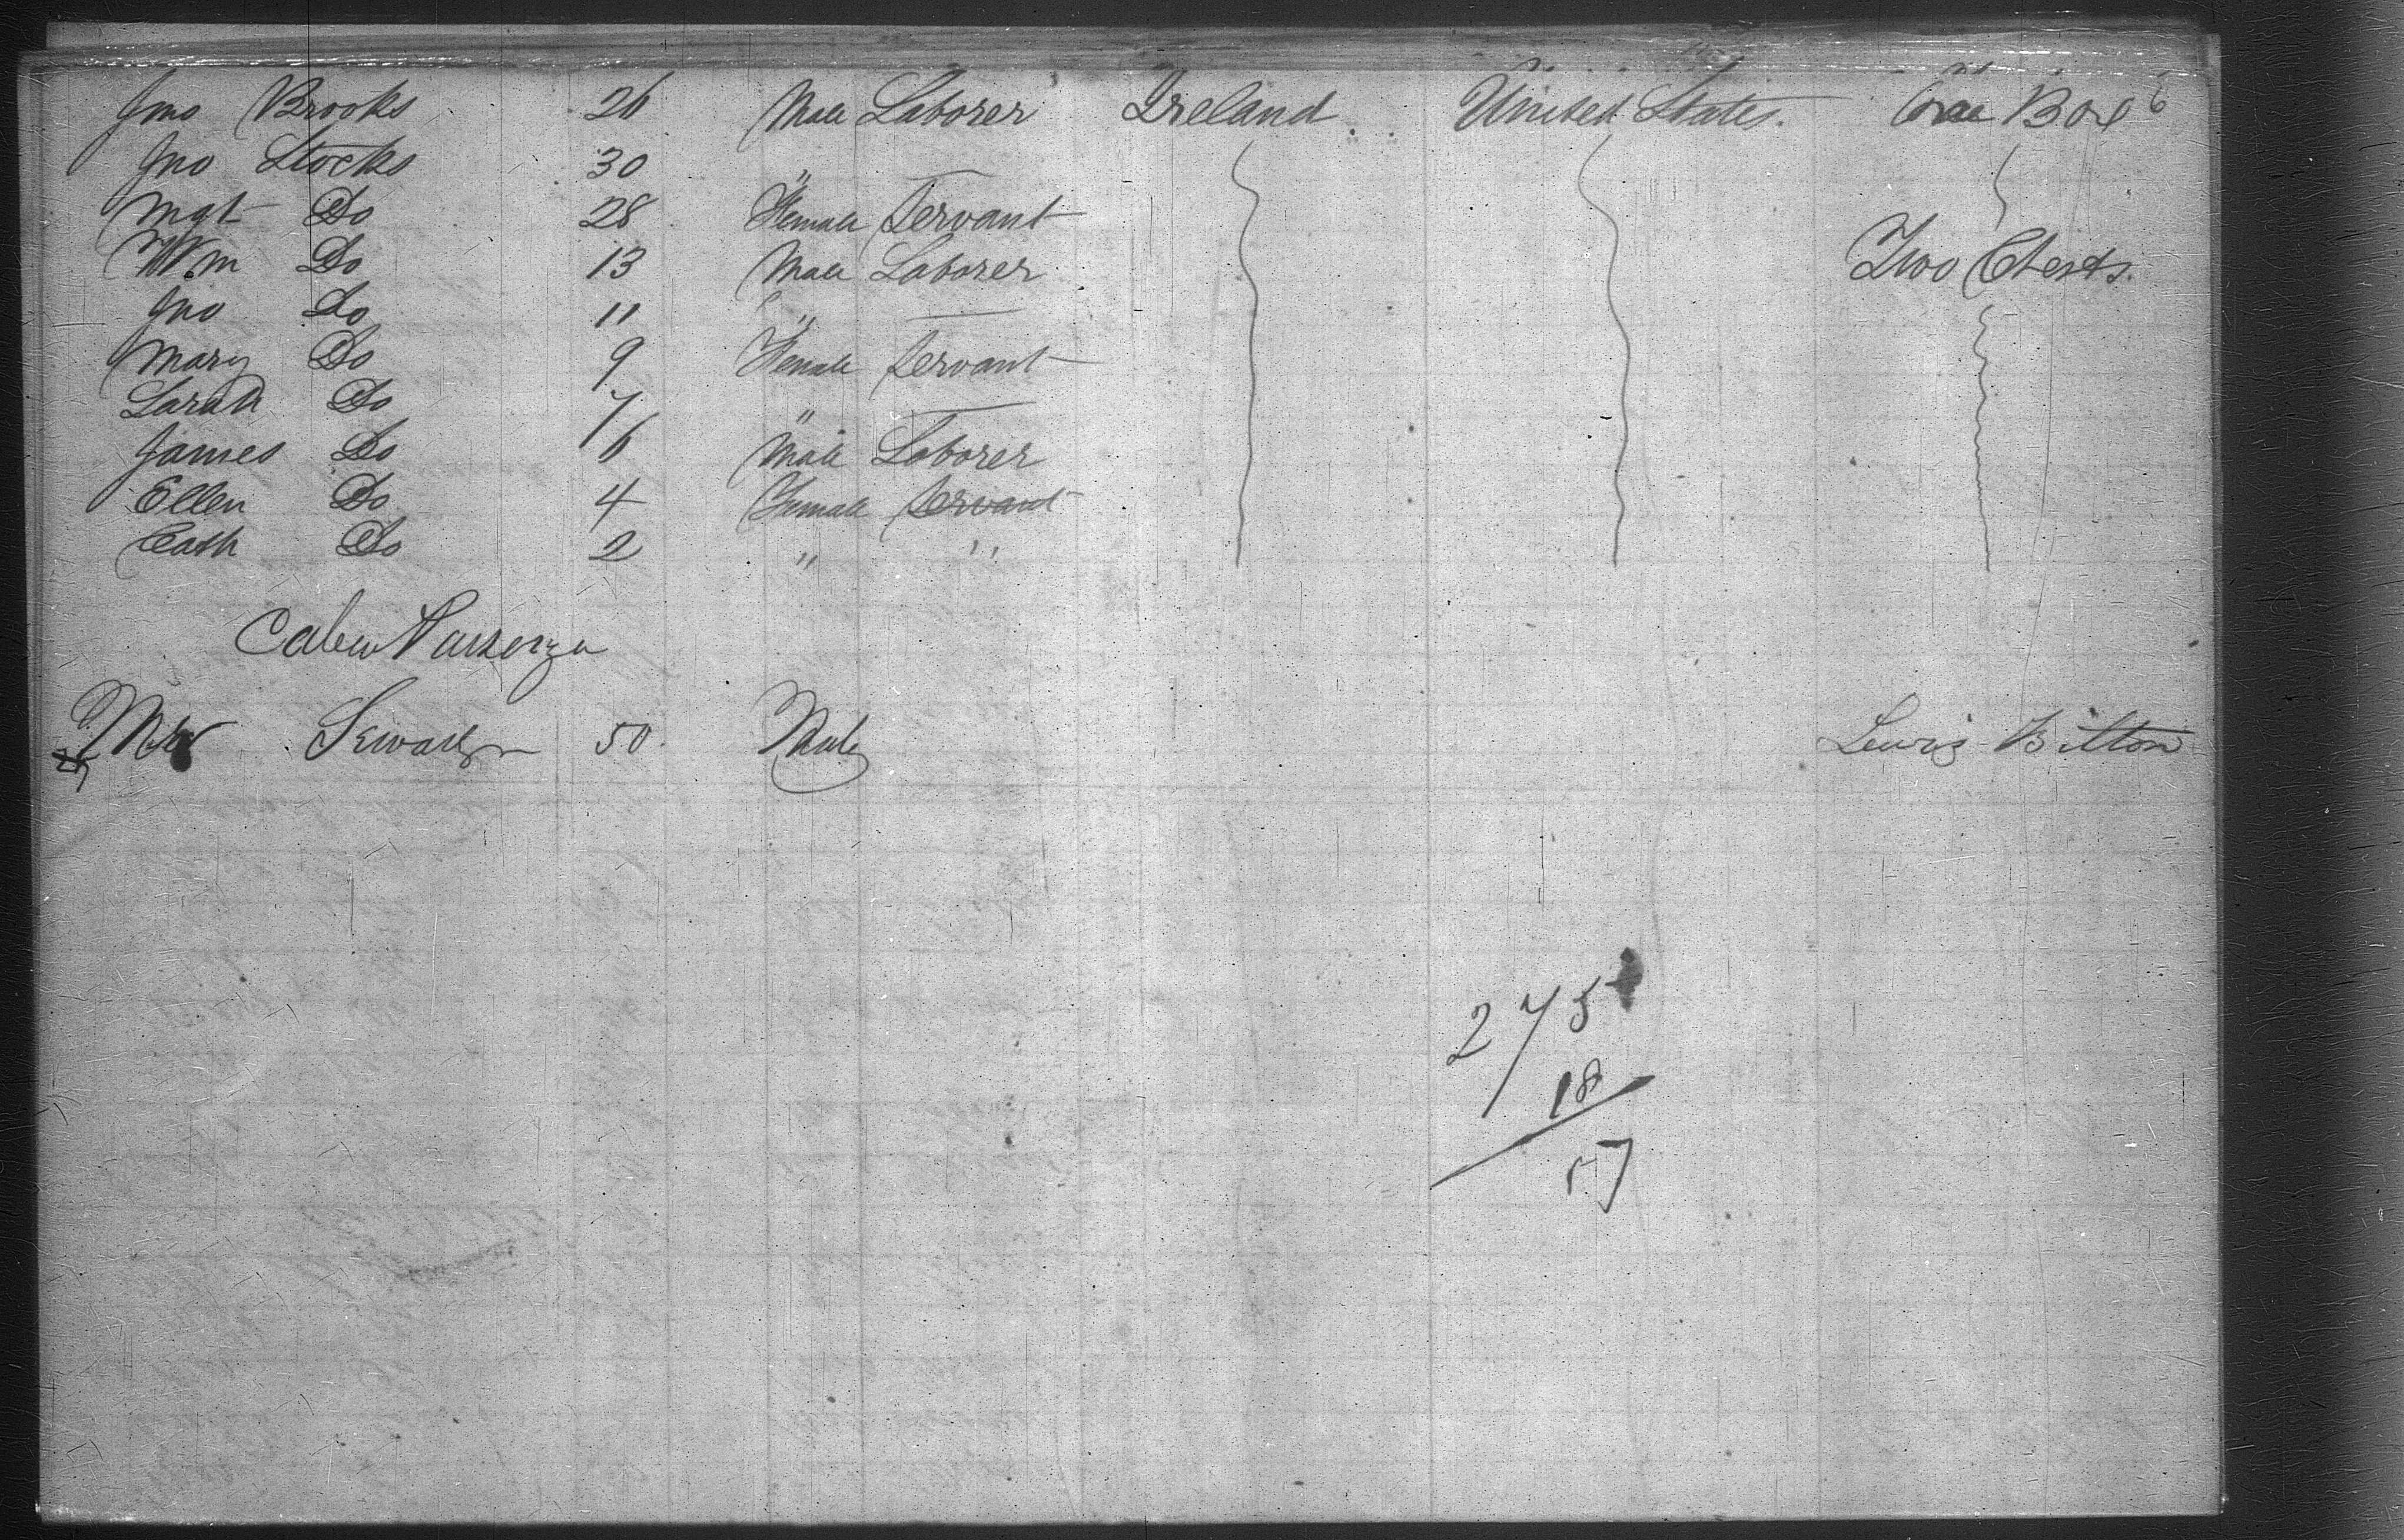 Jno Brooks 26 Male Laborer Ireland United States. One Box 6
Jno Stocks 30 "
Mgt Do 28 Female Servant
Wm Do 13 Male Laborer Two Chests.
Jno Do 11 "
Mary Do 9 Female Servant
Sarah Do 7 "
James Do 6 Male Laborer
Ellen Do 4 Female Servant
Cath Do 2 " "
Cabin Passenger
Mr 50 Male Lewis Bitton
275
18
57